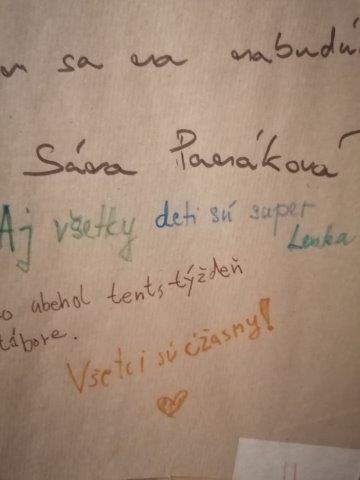 sa na nabudú
Sára Panáková
Aj všetky deti sú super
Lenka
o ubehol tents týždeň
tábore.
Všetci sú úžasny!